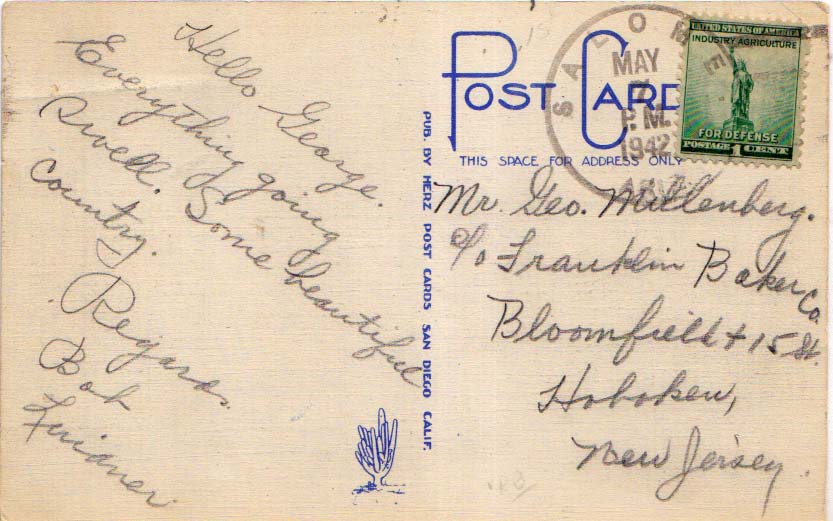 Hello George.
Everything going
swell. Some beautiful
country.
Regards.
Bob
POST CARD
THIS SPACE FOR ADDRESS ONLY
PUB. BY HERZ POST CARDS SAN DIEGO CALIF.
SALOME
MAY
7
P.M.
1942
ARIZ.
UNITED STATES OF AMERICA
INDUSTRY AGRICULTURE
FOR DEFENSE
POSTAGE 1 CENT
Mr. Geo. Mullenberg.
c/o Franklin Baker Co.
Bloomfield + 15 St.
Hoboken,
New Jersey.